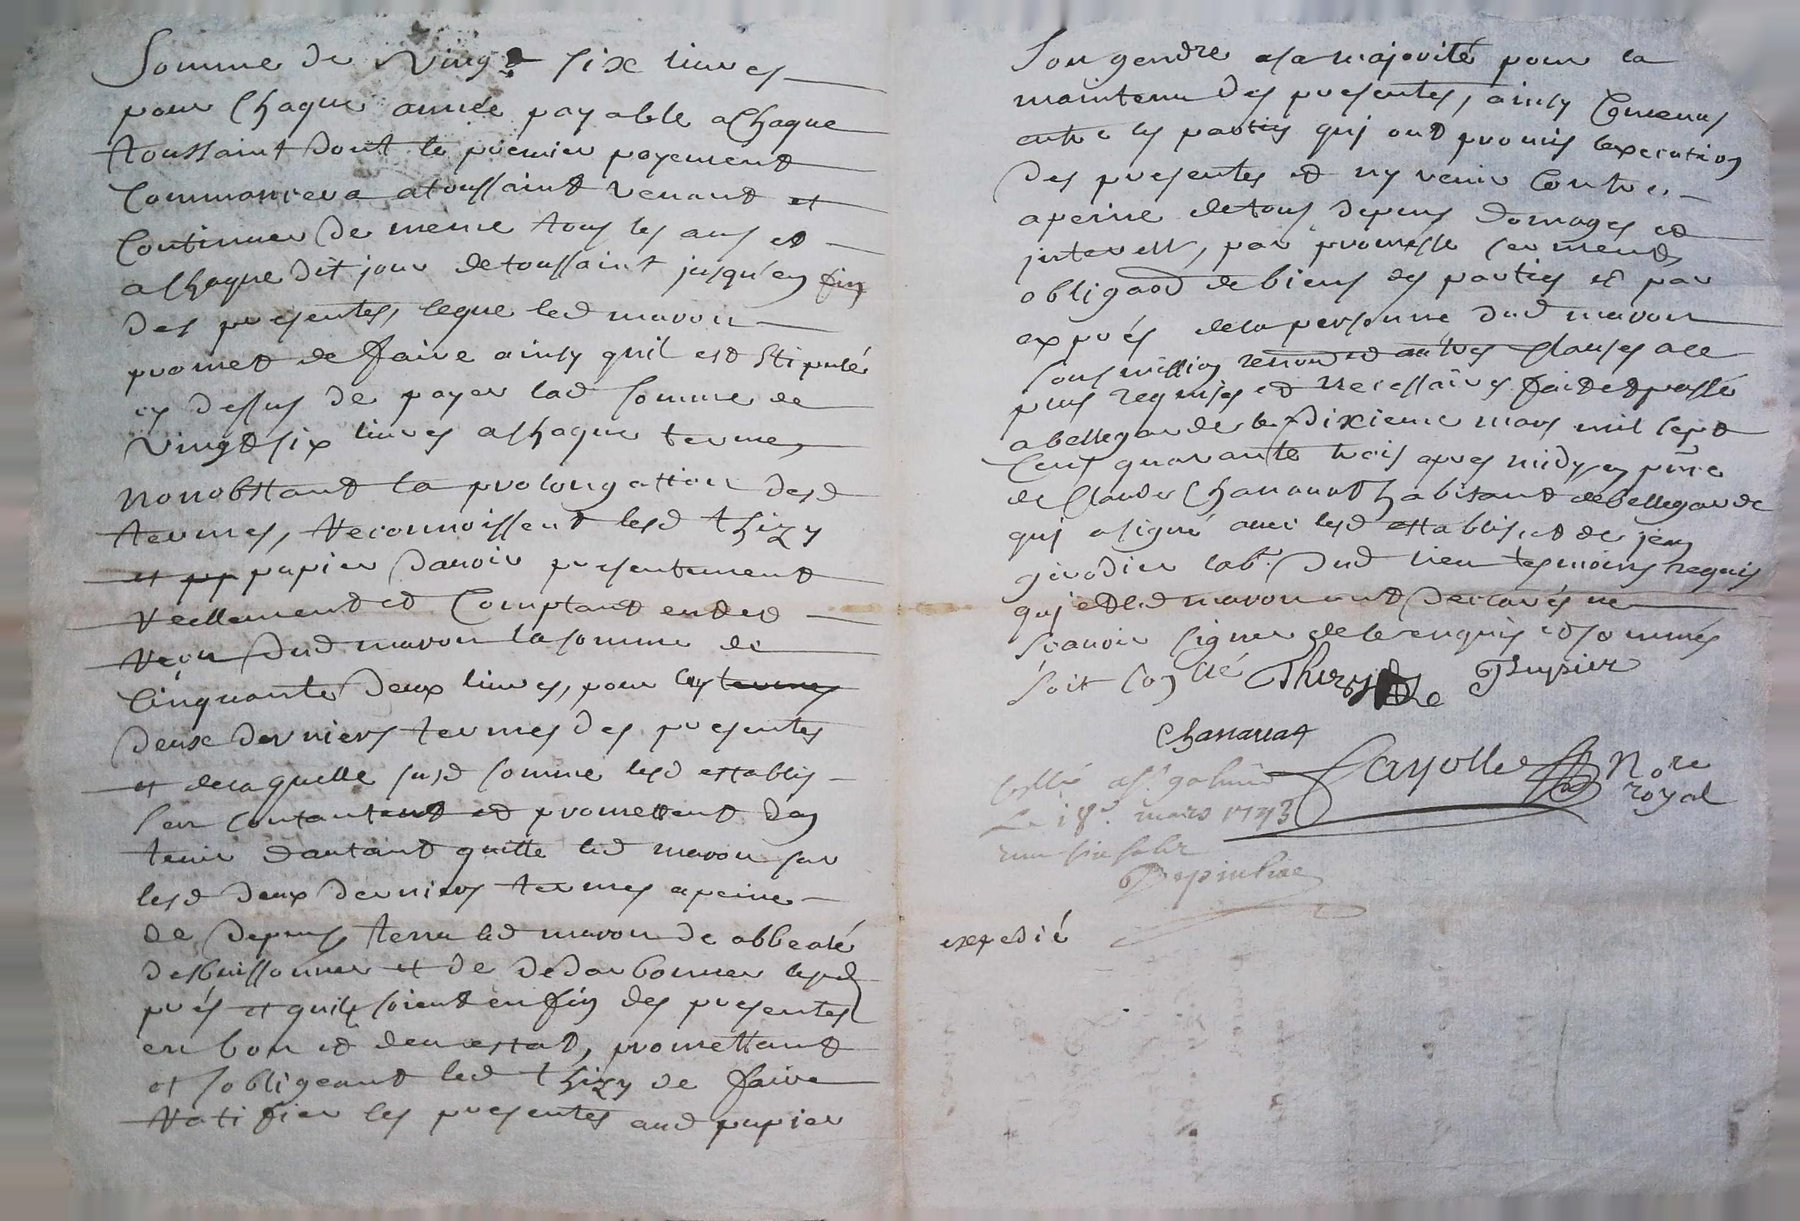 Somme de Vingt six livres
pour Chaque année payable a Chaque
toussaint dont le premier payement
Commancera a toussaint venant et
Continuer de meme tous les ans et
a Chaque dit jour de toussaint jusqu'en fin
des presentes, leque led maron
promet de faire ainsy quil est stipulé
cy dessus de payer lad somme de
Vingt six livres a Chaque terme,
nonobstant la prolongation desd
termes, reconnoissent lesd thizy
et pupier d'avoir presentement
reellement et Comptant
reçu dud maron la somme de
Cinquante deux livres, pour les termes
deux derniers termes des presentes
et de laquelle susd somme lesd establis
sen contantent et promettent den
tenir dautant quitte led maron sur
lesd deux derniers termes a peine
de depens, tenu led maron de
desbuissonner et de lesd
prés et quils soient en fin des presentes
en bon et deu estat, promettant
et sobligeant led thizy de faire
ratifier les presentes aud pupier
son gendre a sa majorité pour la
maintenu des presentes, ainsy Convenus
entre les parties qui ont promis lexecution
des presentes et ny venir Contre
a peine de tous depens domages et
interest, par promesse serment
obligaon de biens des parties et par
exprés de la personne dud maron
soumission renon et autres Clauses a ce
plus requises et necessaires fait et passé
a bellegarde le dixieme mars mil sept
Cens quarante trois apres midy en pnce
de Claude Chanavat habitant de bellegarde
qui a signé avec lesd establis, et de jean
girodier lab.r dud lieu tesmoins requis
qui et led maron ont declarés ne
scavoir signer de ce enquis et sommés
soit Con llé Thizy Pupier
Chanavat
Cayolle Nore
royal
Con llé a St galmier
Le 18e mars 1743

expedié